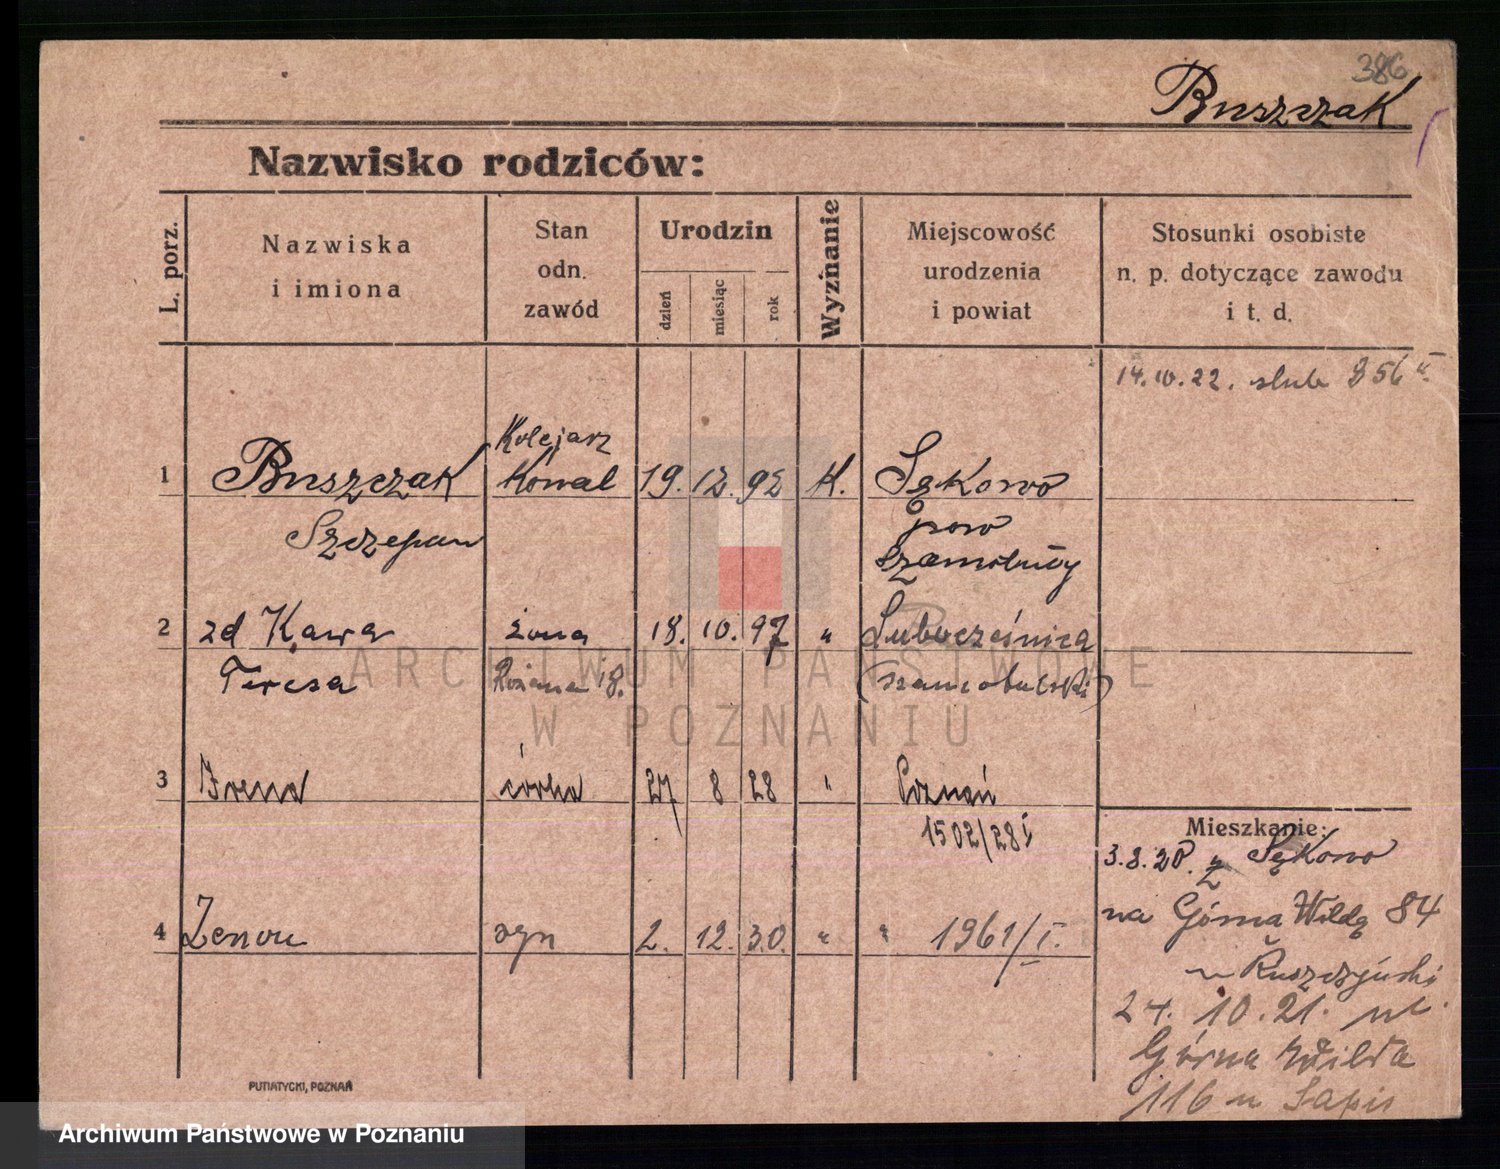 386
Buszczak
Nazwisko rodziców:
L. porz.
Nazwiska
i imiona
Stan
odn.
zawód
Urodzin
dzień
miesiąc
rok
Wyznanie
Miejscowość
urodzenia
i powiat
Stosunki osobiste
n. p. dotyczące zawodu
i t. d.
14.10.22. slub 856
Kolejarz
1 Buszczak Kowal 19. 12. 92 K. Sękowo
Szczepan pow
Szamotuły
2 zd Kawa żona 18. 10. 97 " Lubocześnica
Teresa Różana 18. (szamotulski)
3 Irena córka 27 8 28 " Poznań
1502/28 I
Mieszkanie:
3.8.20. z Sękowo
na Górna Wilda 84
4 Zenon syn 2. 12. 30. " " 1961/I.
u
24. 10. 21. ul.
Górna Wilda
116 u
PUTIATYCKI, POZNAŃ
ARCHIWUM PAŃSTWOWE
W POZNANIU
Archiwum Państwowe w Poznaniu